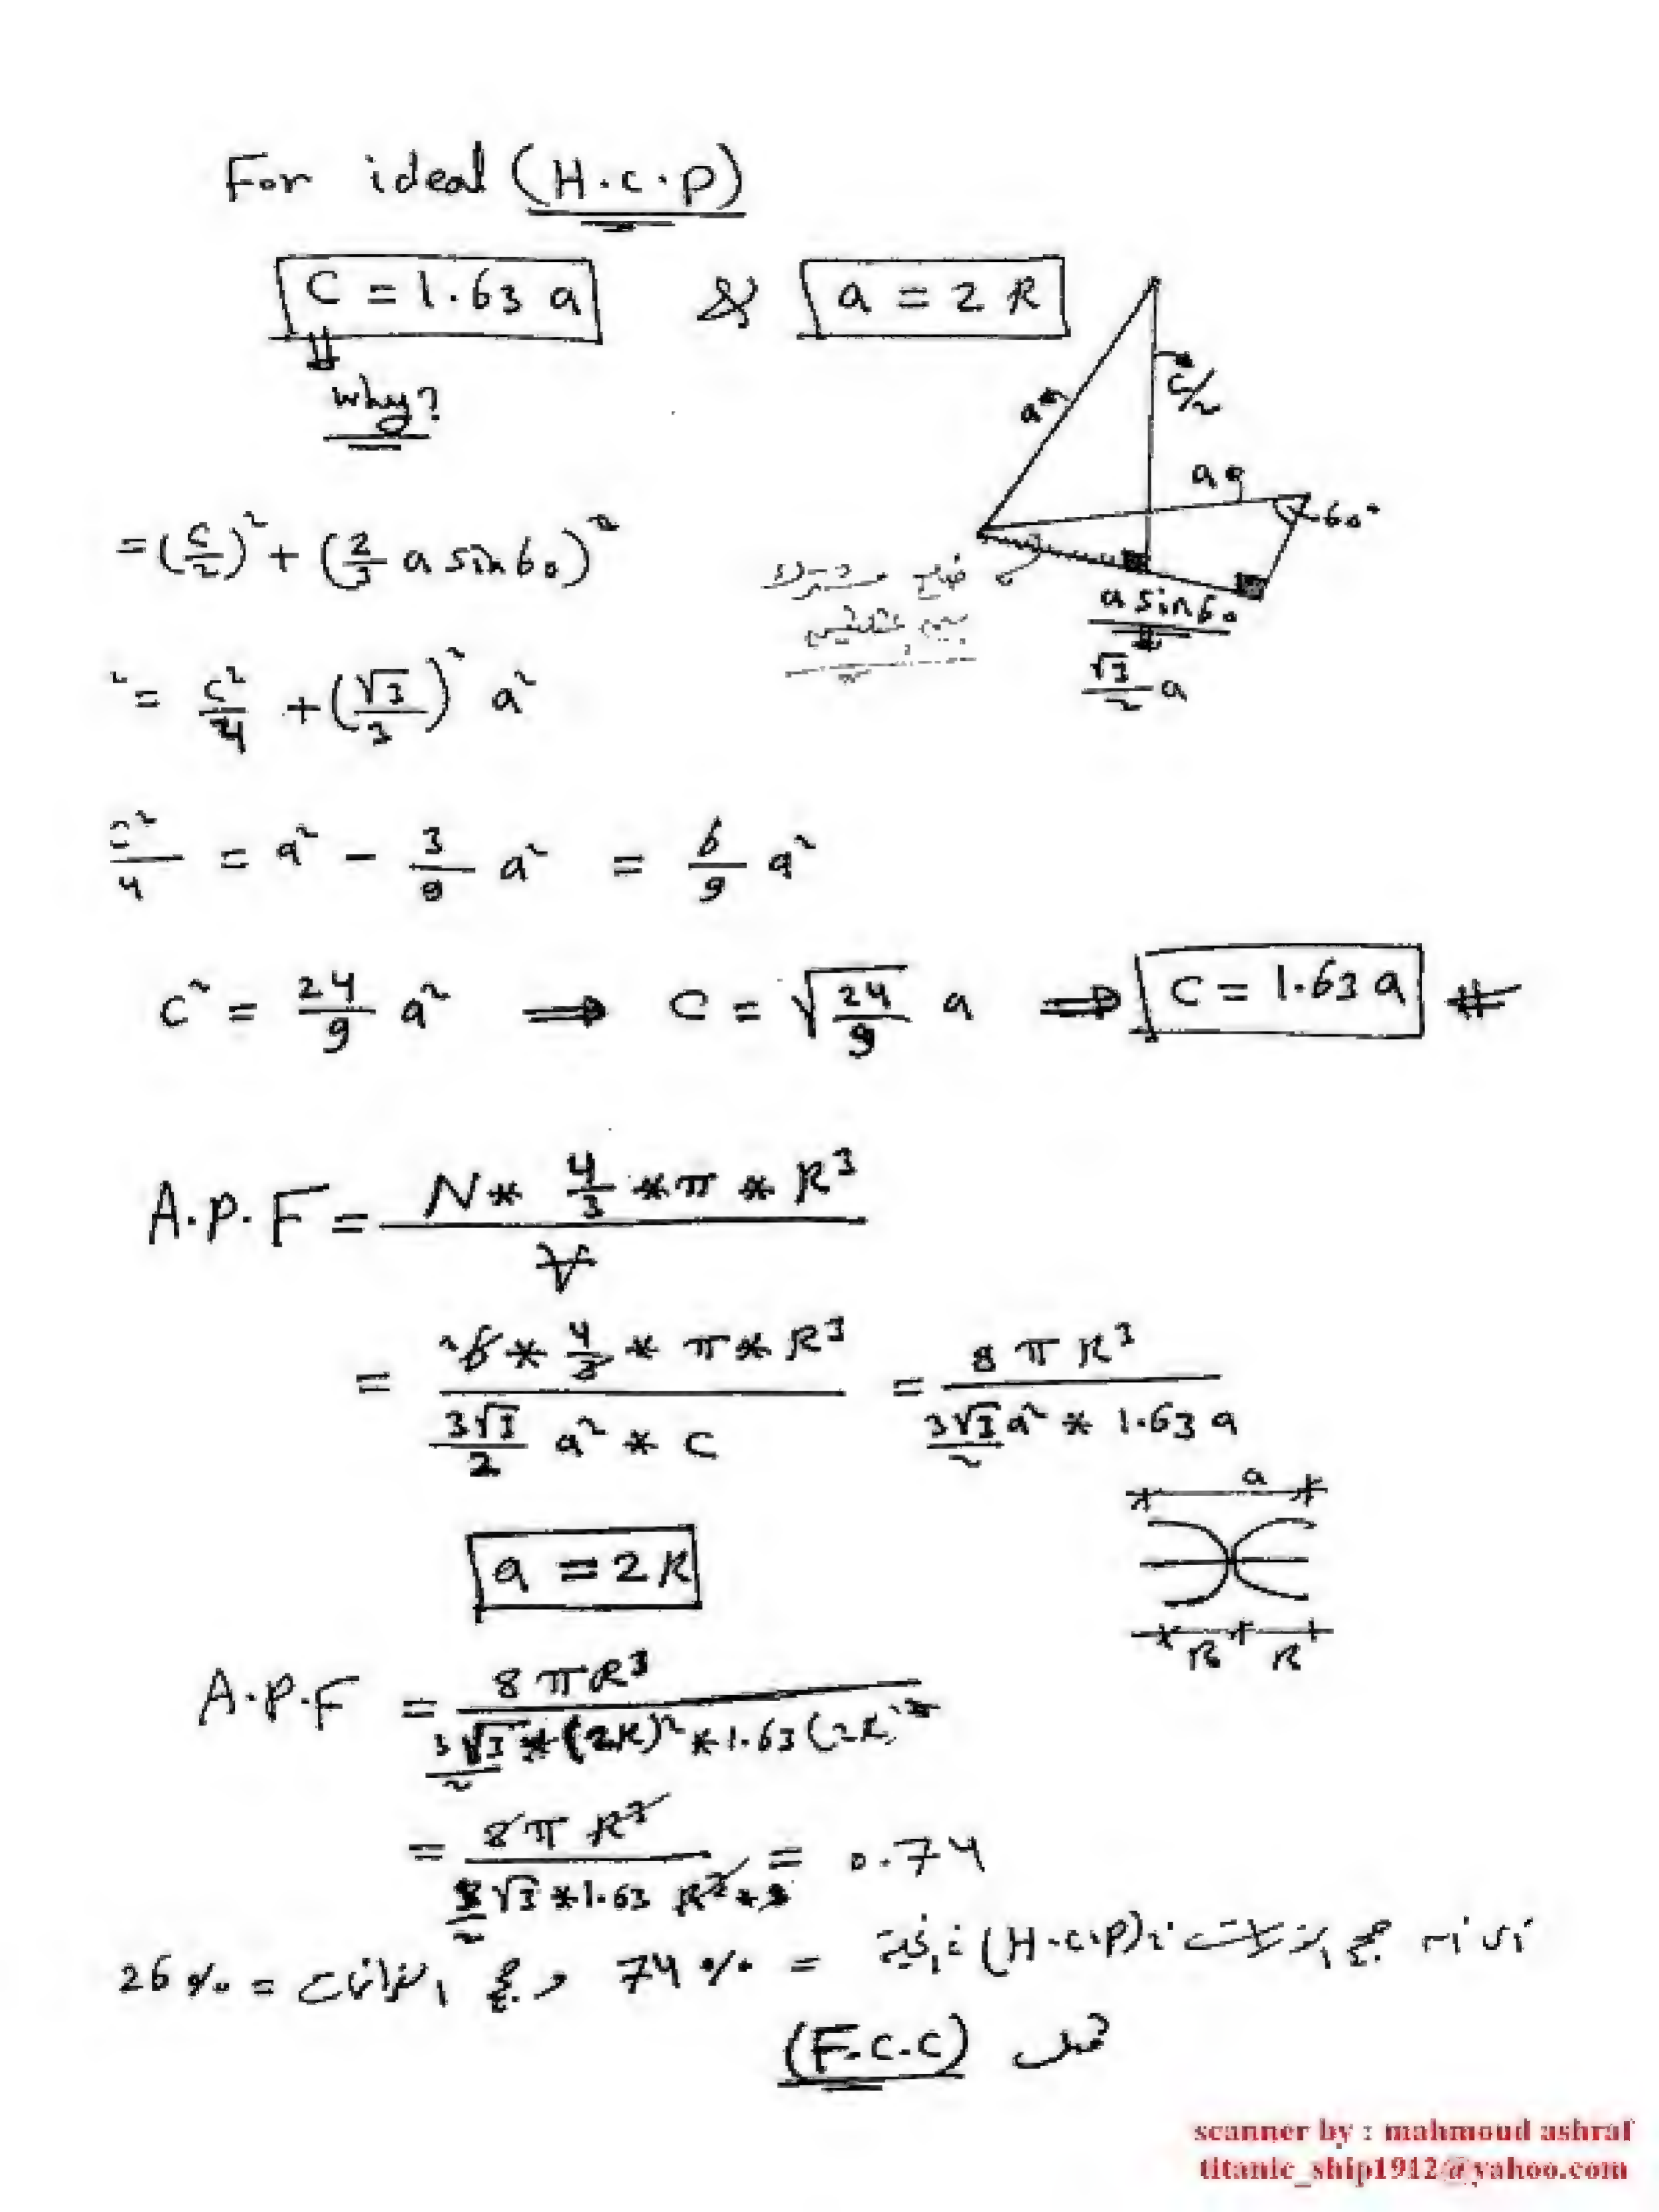 For ideal (H.c.p)
C = 1.63 a & a = 2 R
why?
a
c/2
a
60°
a sin 60
√3/2 a
= (c/2)² + (2/3 a sin 60)²
² = c²/4 + (√3/3)² a²
c²/4 = a² - 3/9 a² = 6/9 a²
C² = 24/9 a² ⇒ C = √(24/9) a ⇒ C = 1.63 a #
A.P.F = N * 4/3 * π * R³ / V
= 6 * 4/3 * π * R³ / (3√3/2 a² * c) = 8 π R³ / (3√3/2 a² * 1.63 a)
a
a = 2R
R R
A.P.F = 8 π R³ / (3√3/2 * (2R)² * 1.63 (2R))
= 8 π R³ / = 0.74
حجم الذرات (H.c.p) = 74 % و حجم الفراغات = 26 %
(F.C.C)
scanner by : mahmoud ashraf
titanic_ship1912@yahoo.com